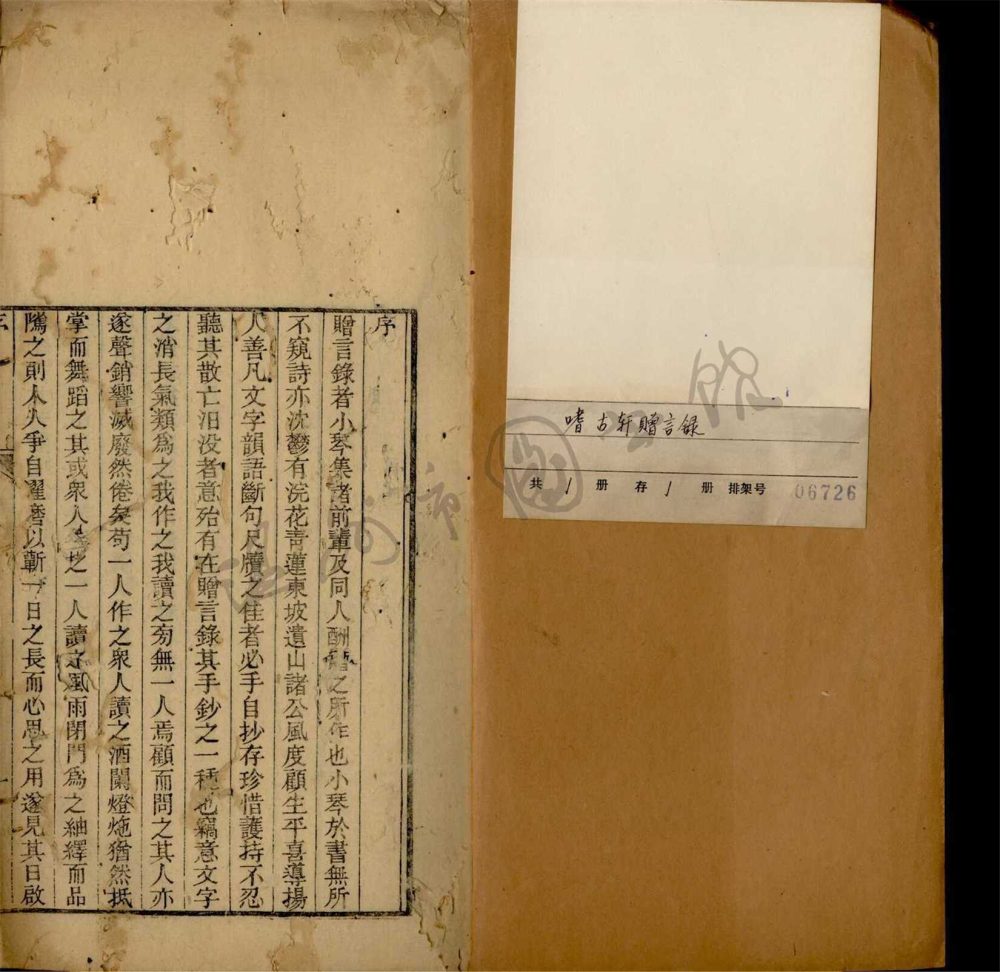 嗜古轩赠言録
共 1 册 存 1 册 排架号 06726
序
贈言錄者小琴集諸前輩及同人酬贈之所作也小琴於書無所
不窺詩亦沈鬱有浣花青蓮東坡遺山諸公風度顧生平喜導揚
人善凡文字韻語斷句尺牘之佳者必手自抄存珍惜護持不忍
聽其散亡汨没者意殆有在贈言錄其手鈔之一種也竊意文字
之消長氣類爲之我作之我讀之旁無一人焉顧而問之其人亦
遂聲銷響滅廢然倦矣苟一人作之衆人讀之酒闌燈灺猶然抵
掌而舞蹈之其或衆人作之一人讀之風雨閉門爲之紬繹而品
隲之則人人爭自濯磨以蘄一日之長而心思之用遂見其日啟